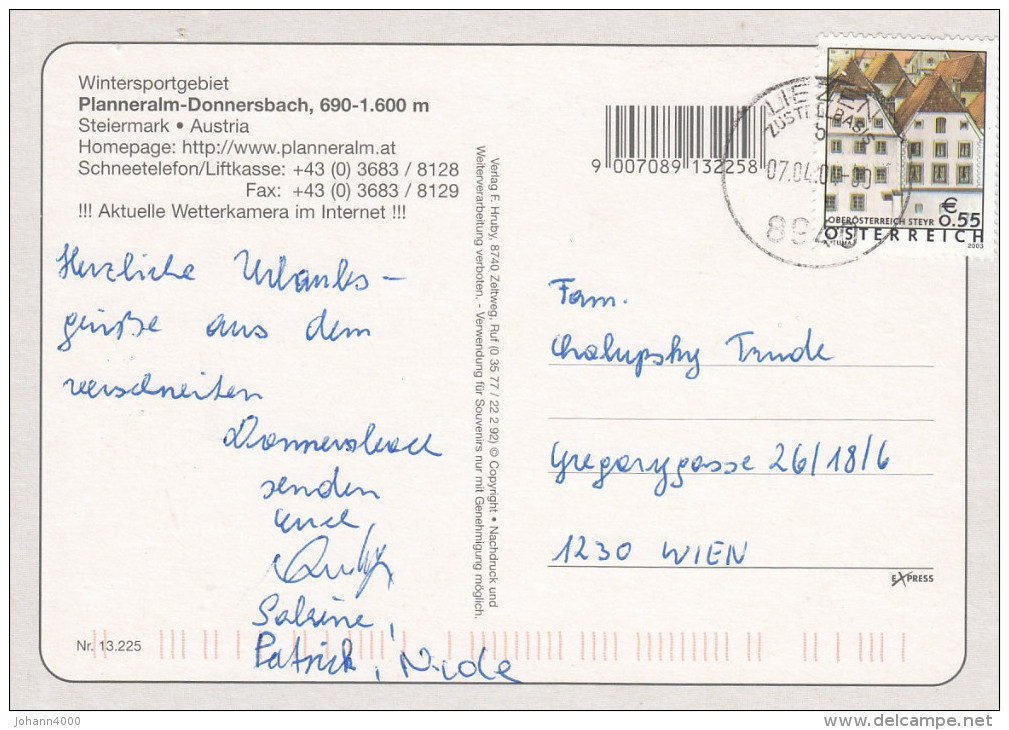 Wintersportgebiet
Planneralm-Donnersbach, 690-1.600 m
Steiermark • Austria
Homepage: http://www.planneralm.at
Schneetelefon/Liftkasse: +43 (0) 3683 / 8128
Fax: +43 (0) 3683 / 8129
!!! Aktuelle Wetterkamera im Internet !!!
Herzliche Urlaubs-
grüße aus dem
verschneiten
Donnersbach
senden
Euch,
Sabine,
Patrick, Nicole
Nr. 13.225
Verlag F. Hruby, 8740 Zeltweg, Ruf (0 35 77 / 22 2 92) © Copyright • Nachdruck und
Weiterverarbeitung verboten. - Verwendung für Souvenirs nur mit Genehmigung möglich.
9 007089 132258
LIEZEN
ZUSTELLBASIS
07.04.04
8940
€
0.55
OBERÖSTERREICH STEYR
ÖSTERREICH
A. TUMA
2003
Fam.
Chalupsky Trude
Gregorygasse 26/18/6
1230 WIEN
EXPRESS
Johann4000
www.delcampe.net